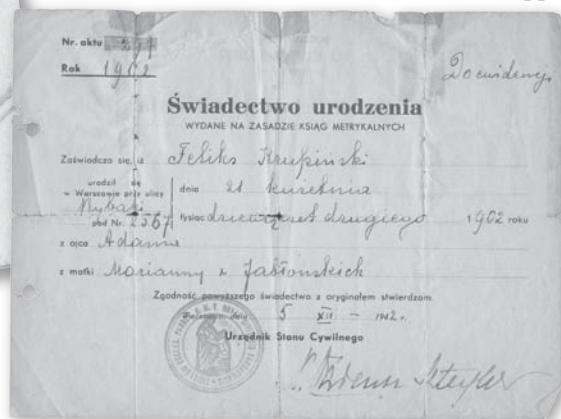 Nr. aktu
Rok 1902
Do ewidencji
Świadectwo urodzenia
WYDANE NA ZASADZIE KSIĄG METRYKALNYCH
Zaświadcza się, iż Feliks Krupiński
urodził się
w Warszawie przy ulicy
dnia 21 kwietnia
Rybaki
pod Nr. 2567
tysiąc dziewięćset drugiego 1902 roku
z ojca Adama
z matki Marianny z Jabłońskich
Zgodność powyższego świadectwa z oryginałem stwierdzam.
dnia 5 XII – 1942 r.
Urzędnik Stanu Cywilnego